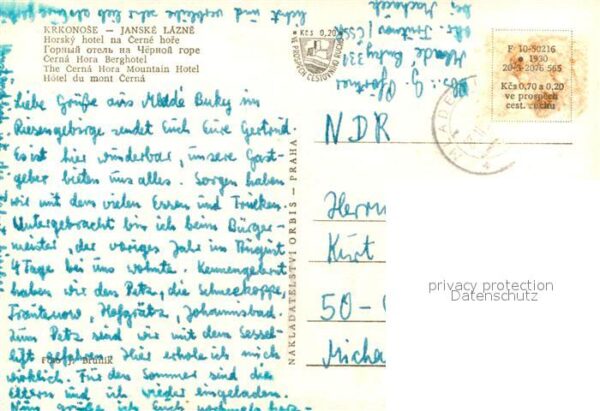 KRKONOŠE – JANSKÉ LÁZNĚ
Horský hotel na Černé hoře
Горный отель на Чёрной горе
Černá Hora Berghotel
The Černá Hora Mountain Hotel
Hôtel du mont Černá
Kčs 0,20
VE PROSPĚCH CESTOVNÍHO RUCHU
F 10-50216
1930
20-5-2076 565
Kčs 0,70 a 0,20
ve prospěch
cest. ruchu
Abs.: G.
Mladé Buky 331
okr. Trutnov / ČSSR
Liebe Grüße aus Mladé Buky im
Riesengebirge sendet Euch Eure Gertrud.
Es ist hier wunderbar, unsere Gast-
geber bieten uns alles. Sorgen haben
wir mit dem vielen Essen und Trinken.
Untergebracht bin ich beim Bürger-
meister, der voriges Jahr im August
4 Tage bei uns wohnte. Kennengelernt
haben wir den Petz, die Schneekoppe,
Trautenow, Hofgrätz, Johannisbad.
Zum Petz sind wir mit dem Sessel-
lift gefahren. Hier erhole ich mich
wirklich. Für den Sommer sind die
Eltern und ich wieder eingeladen.
Nun grüße ich Euch nochmals herz-
lichst und
NAKLADATELSTVÍ ORBIS – PRAHA
NDR
Herrn
Kurt
50-
Micha
Foto J. Bruník
privacy protection
Datenschutz